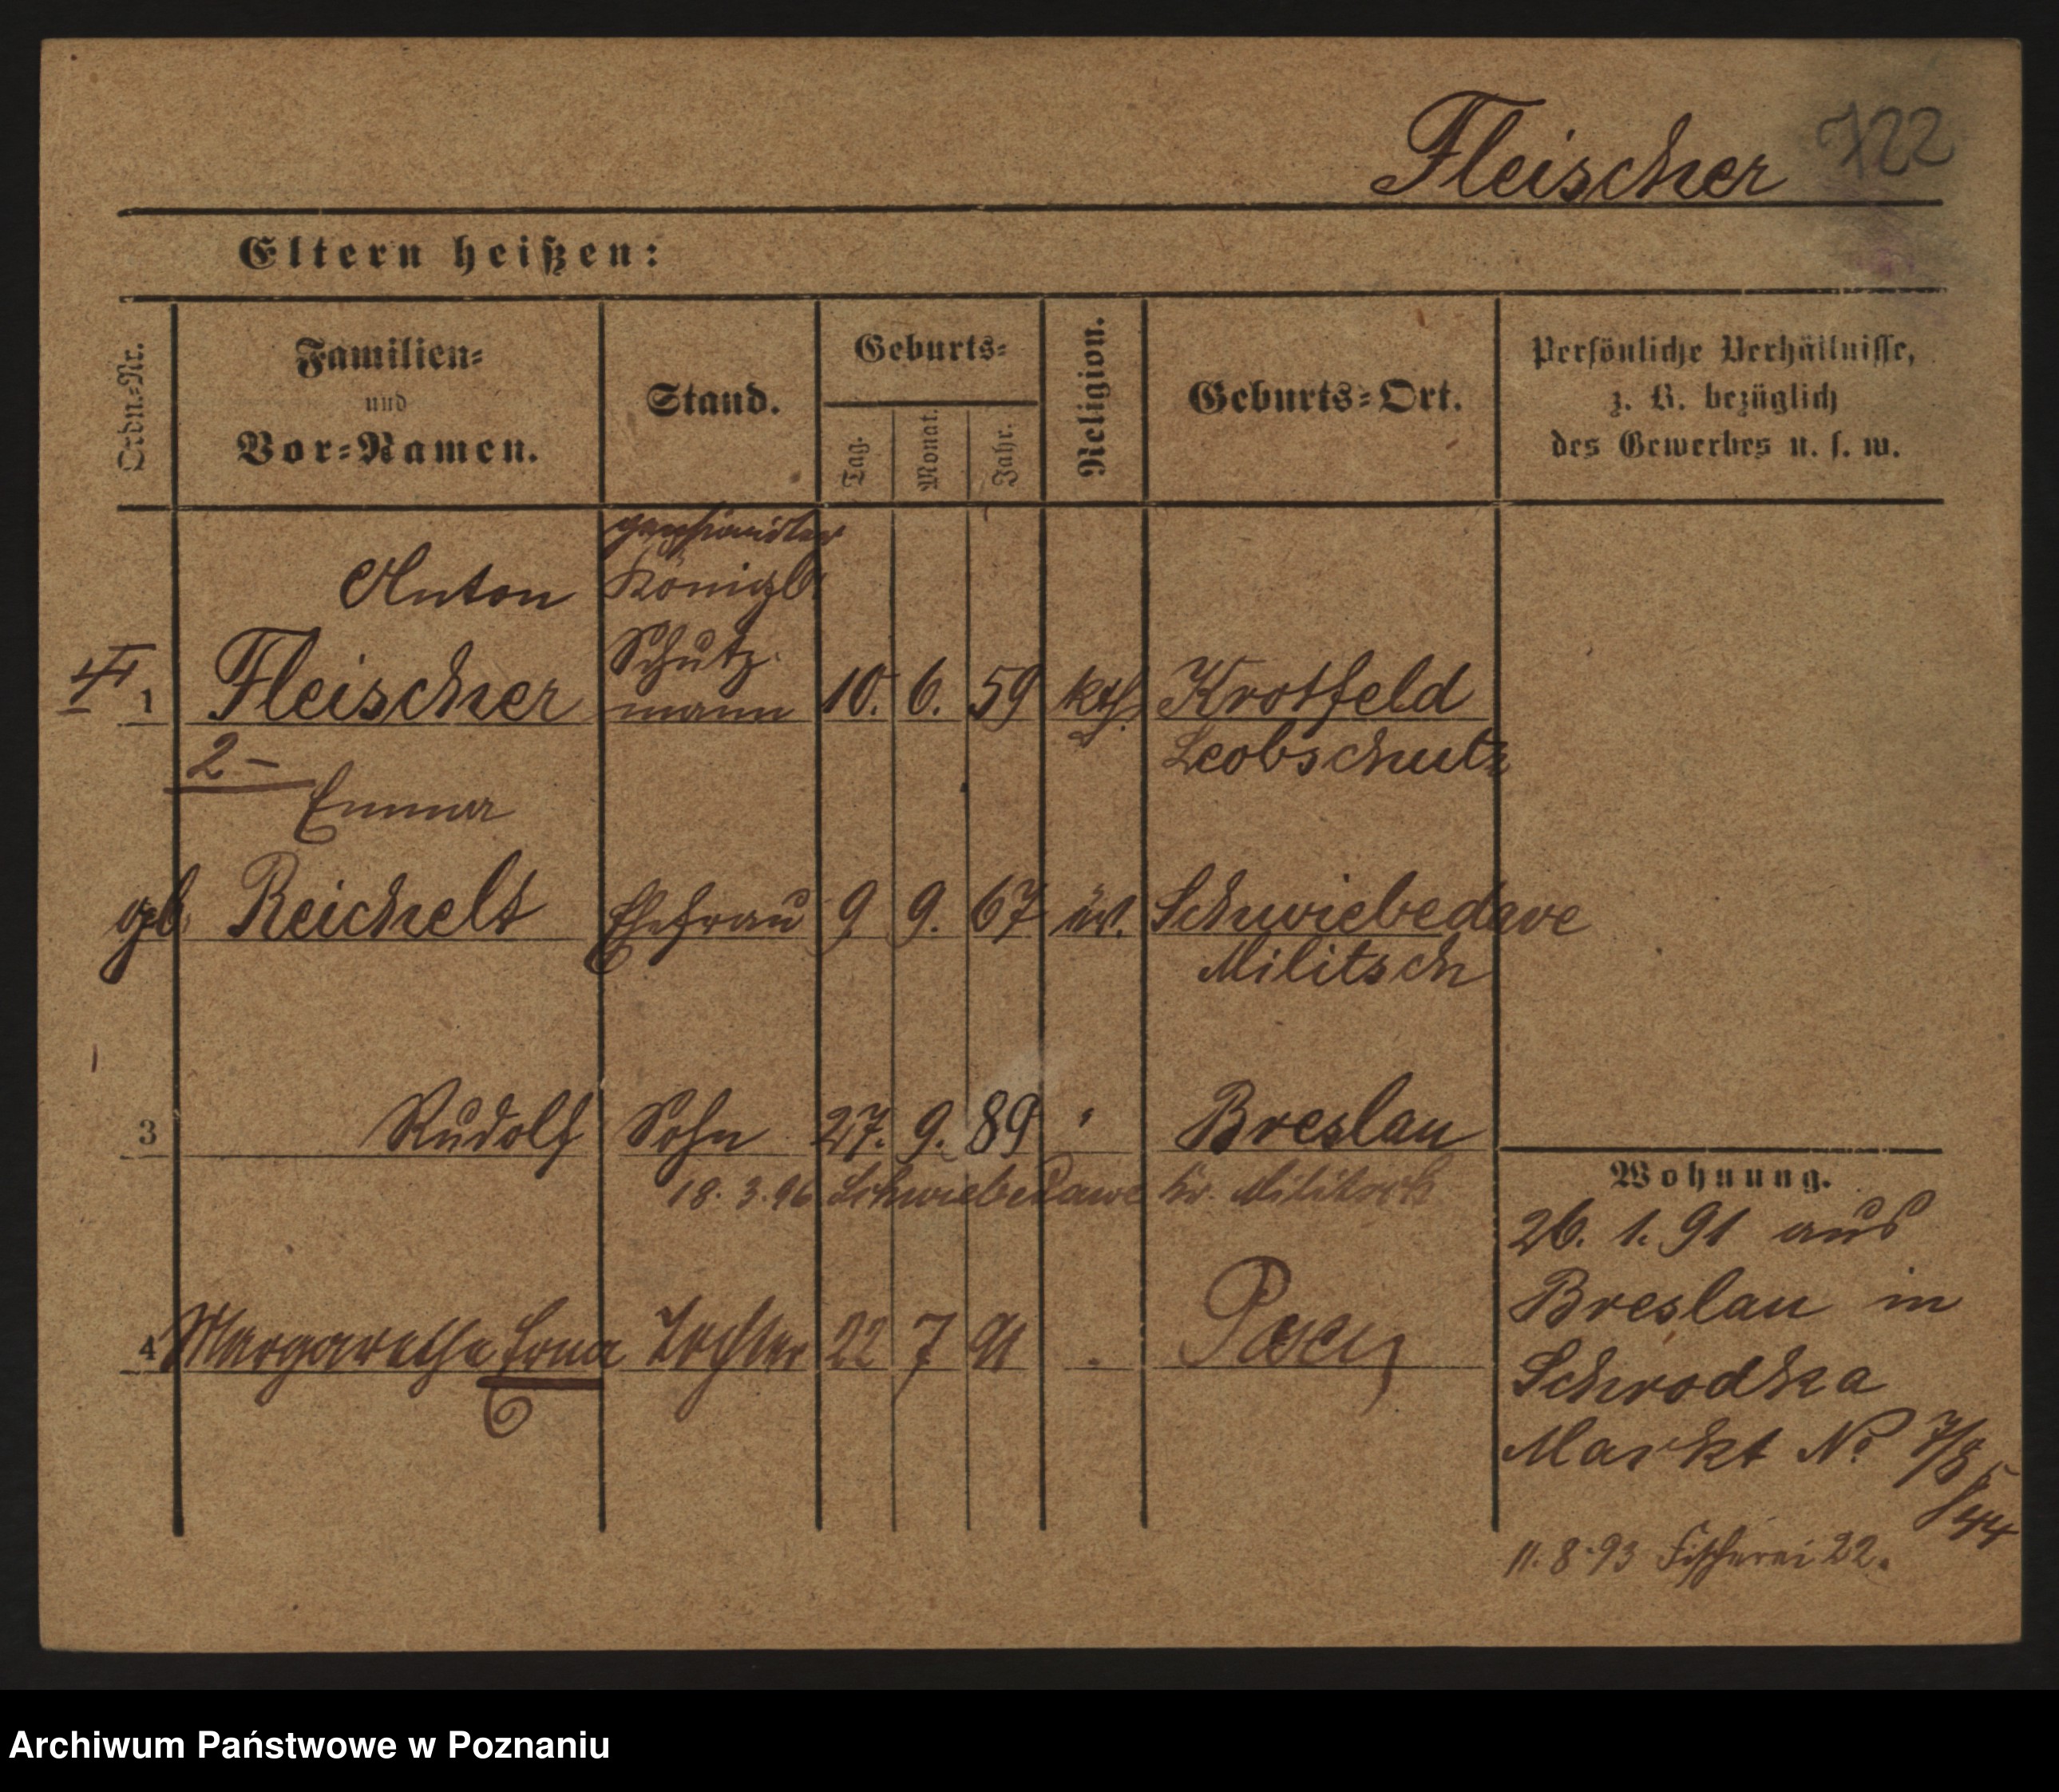 Fleischer 722
Eltern heißen:
Ordn.-Nr.
Familien-
und
Vor-Namen.
Stand.
Geburts-
Tag.
Monat.
Jahr.
Religion.
Geburts-Ort.
Persönliche Verhältnisse,
z. B. bezüglich
des Gewerbes u. s. w.
pensionirter
Anton Königl.
Schutz-
1 Fleischer mann 10. 6. 59 kth. Krotfeld
2 - Leobschutz
Emma
geb. Reichelt Ehefrau 9 9. 67 ev. Schwiebedawe
Militsch
3 Rudolf Sohn 27. 9. 89 " Breslau
18. 3. 96 Schwiebedawe Kr. Militsch
4 Margarethe Erna Tochter 22 7 91 Posen
Wohnung.
26. 1. 91 aus
Breslau in
Schrodka
Markt No 7/8
11. 8. 93 Fischerei 22.
Archiwum Państwowe w Poznaniu